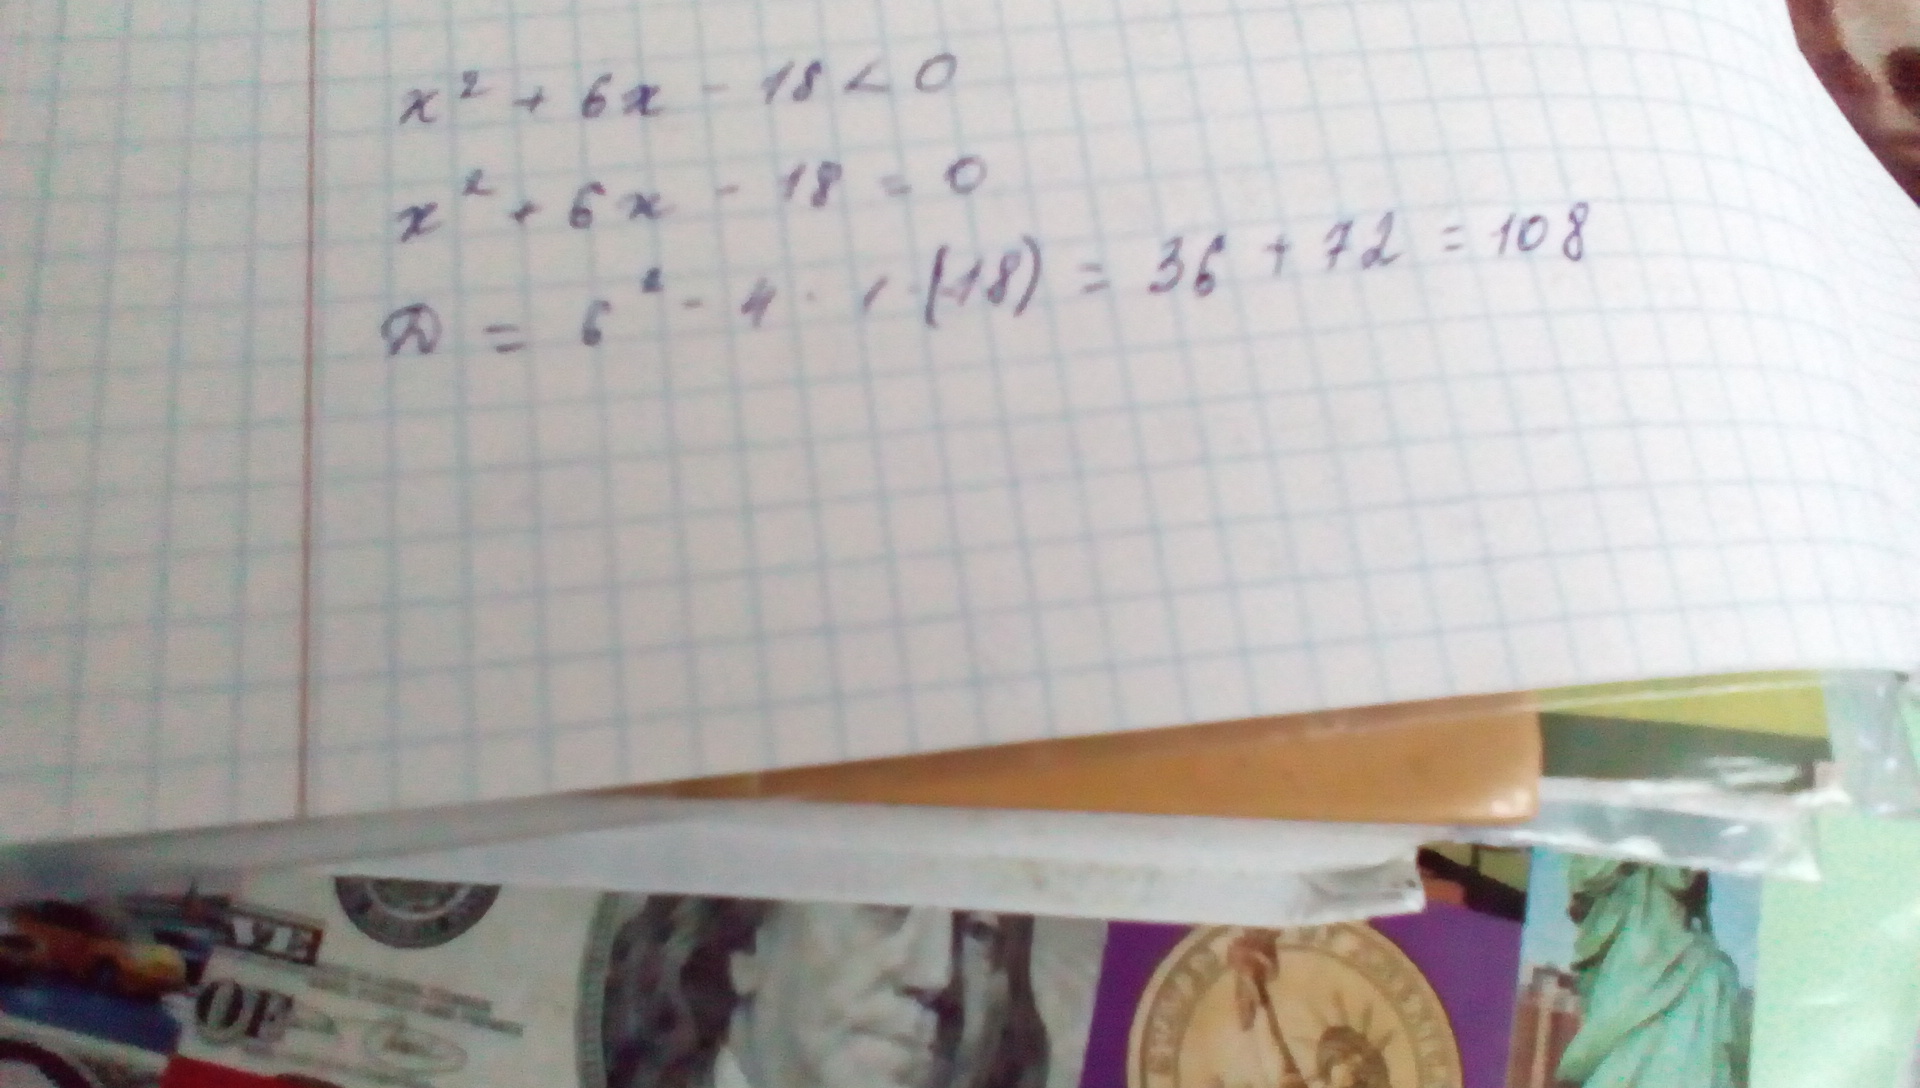 x² + 6x - 18 < 0
x² + 6x - 18 = 0
D = 6² - 4 · 1 · (-18) = 36 + 72 = 108
OF